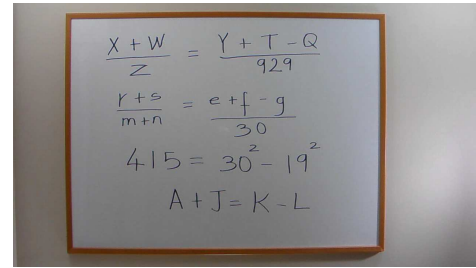 X + W / Z = Y + T - Q / 929
r + s / m + n = e + f - g / 30
415 = 30² - 19²
A + J = K - L